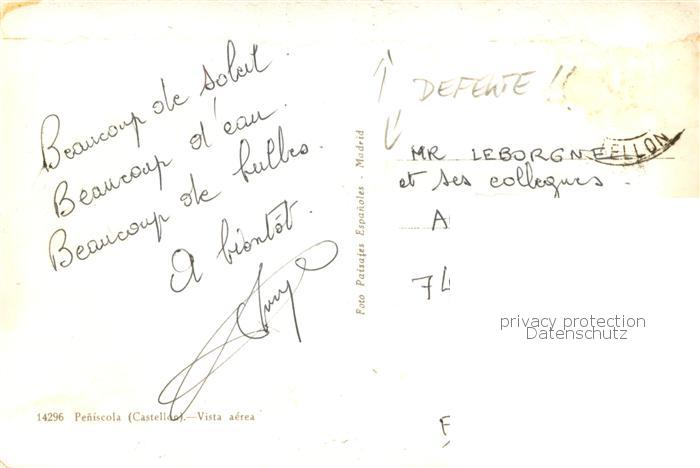 Beaucoup de soleil.
Beaucoup d'eau.
Beaucoup de bulles.
A bientôt.
14296 Peñiscola (Castellon).—Vista aérea
Foto Paisajes Españoles - Madrid
DEFENTE !!
MR LEBORGNE
ELLON
et ses collegues.
A
74
privacy protection
Datenschutz